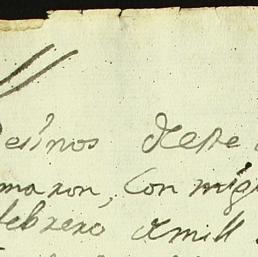 desinos deste
maron, Con mig
febrero de mill